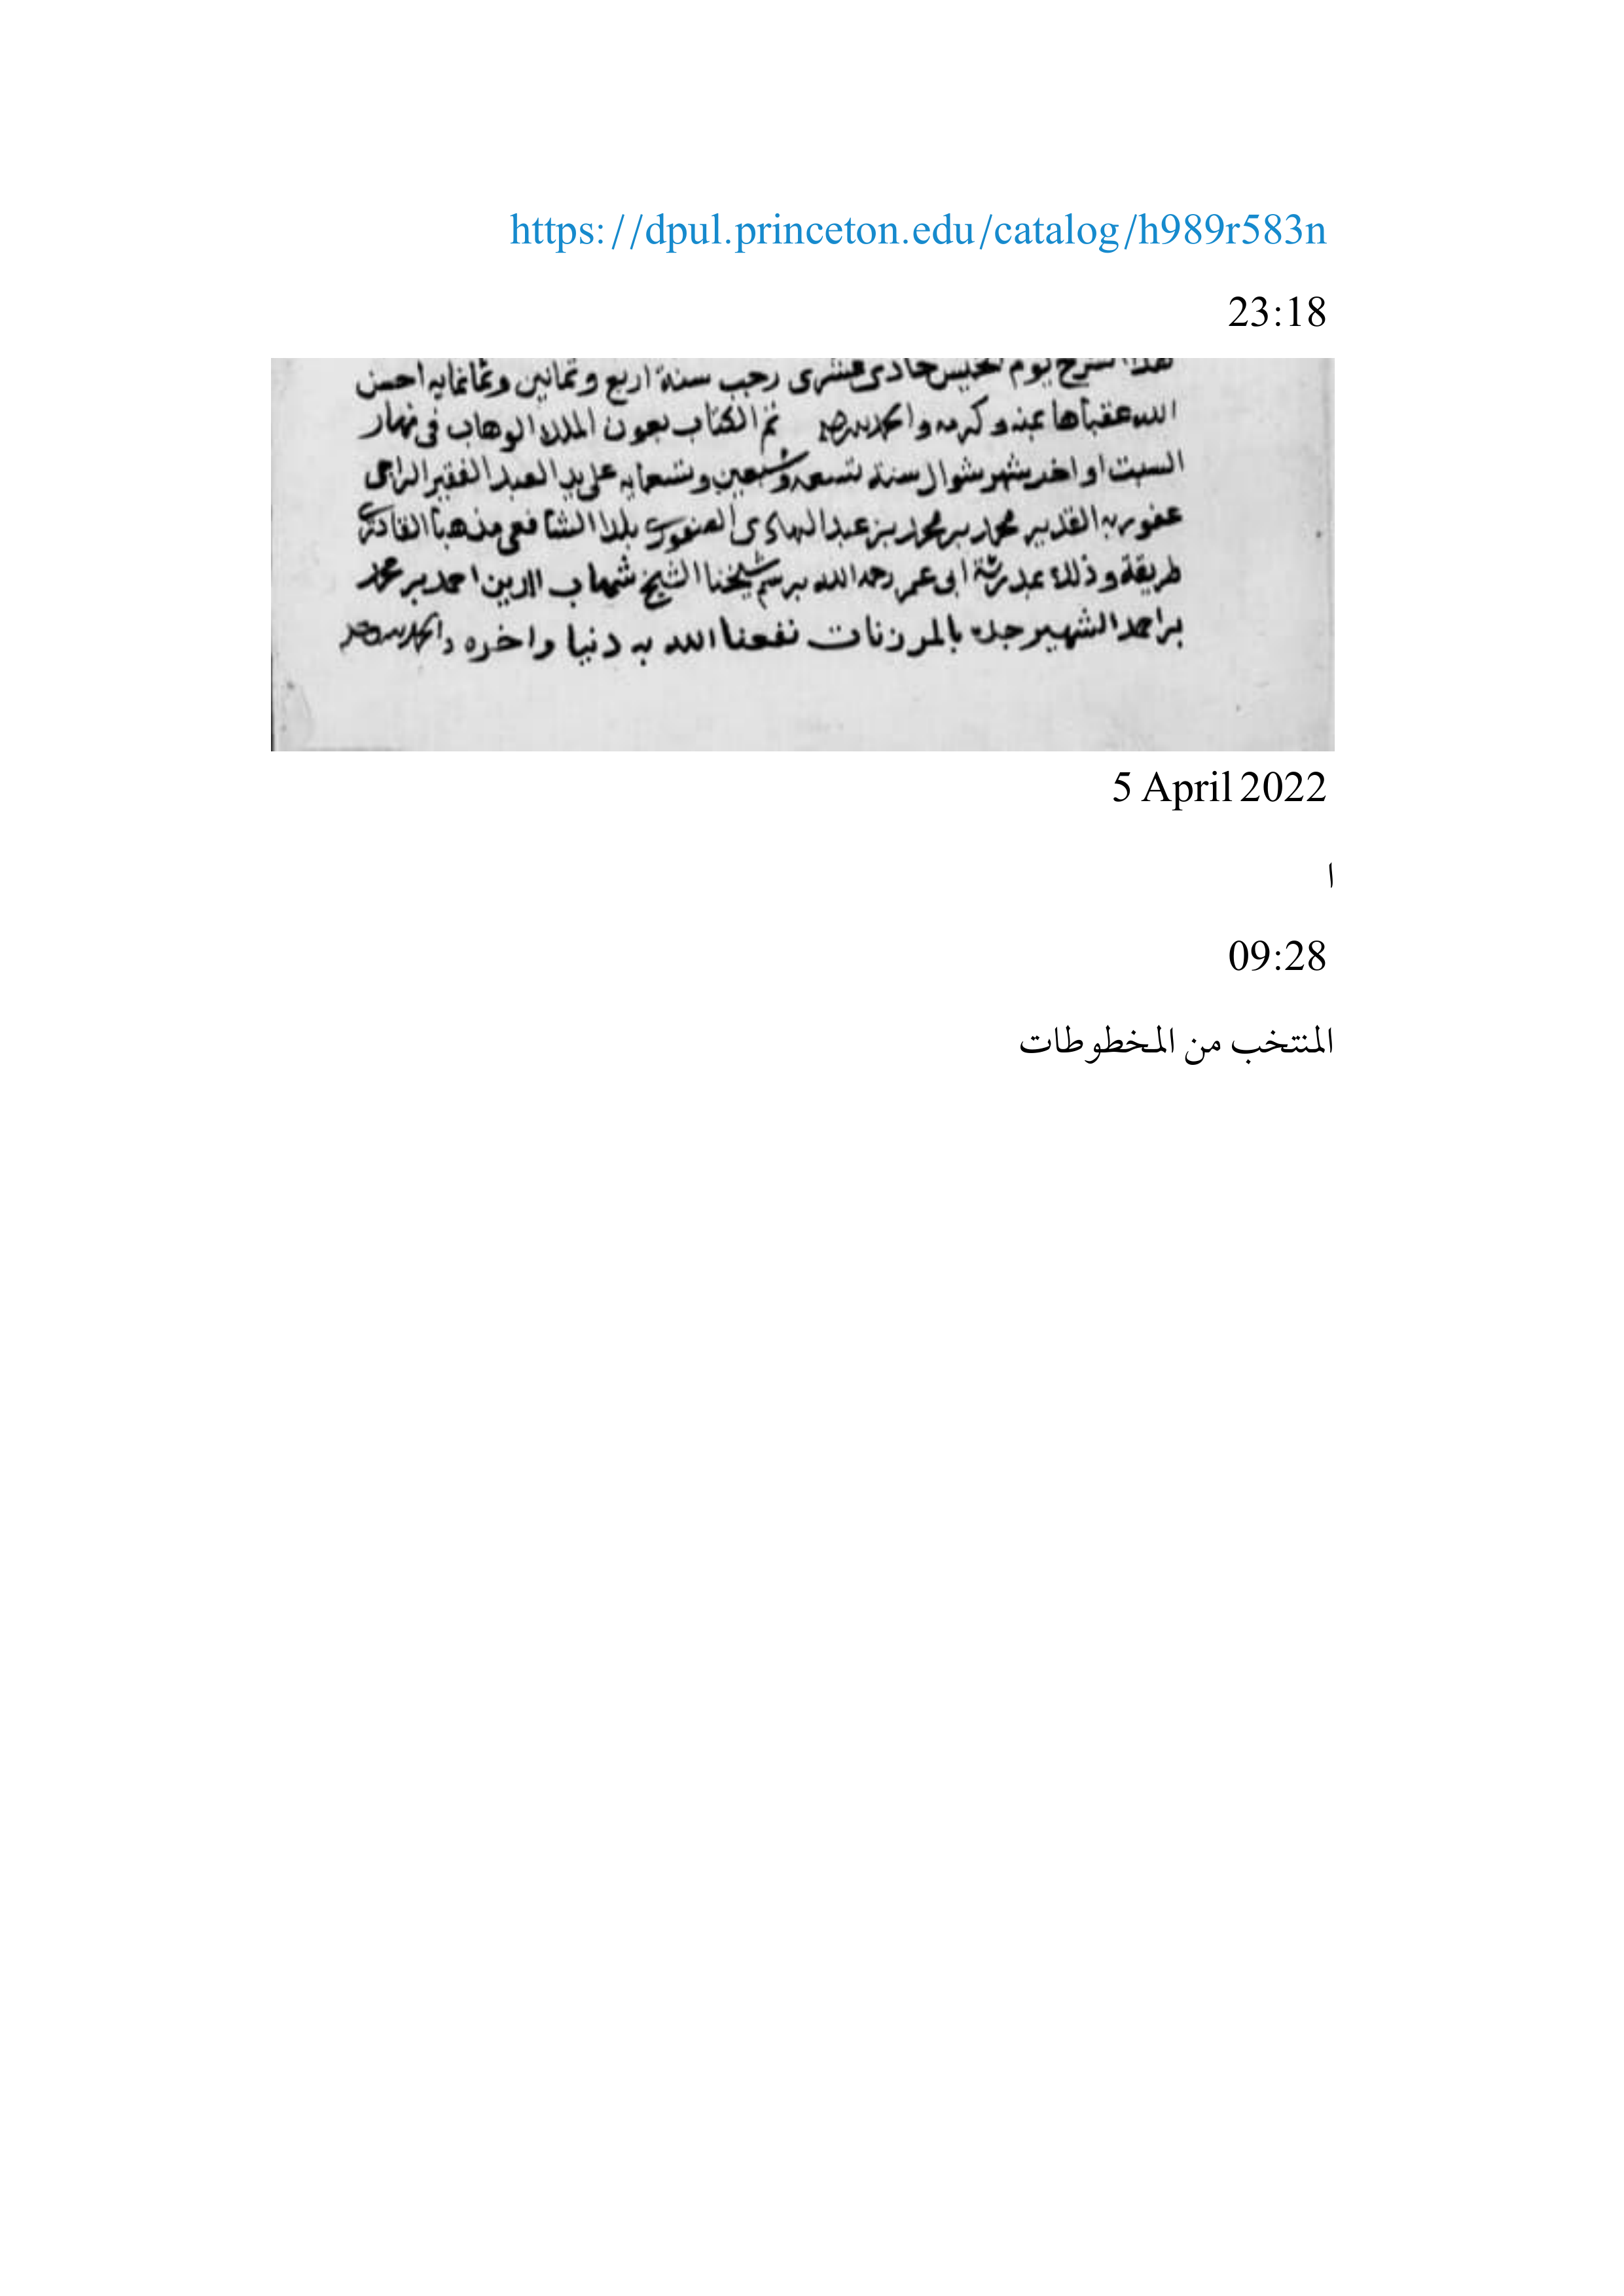 https://dpul.princeton.edu/catalog/h989r583n
23:18
هذا الشرح يوم الخميس حادى عشرى رجب سنة اربع وثمانين وثمانمايه احسن
الله عقباها بمنه وكرمه والحمد لله تم الكتاب بعون الملك الوهاب فى نهار
السبت اواخر شهر شوال سنة تسعه وتسعين وتسعمايه على يد العبد الفقير الراجى
عفو ربه القدير محمد بن محمد بن عبد الهادى بلدا الشافعى مذهبا القادرى
طريقة وذلك بمدرسة ابى عمر رحمه الله برسم شيخنا الشيخ شهاب الدين احمد بن محمد
بن احمد الشهير جده نفعنا الله به دنيا واخره والحمد لله وحده
5 April 2022
ا
09:28
المنتخب من المخطوطات